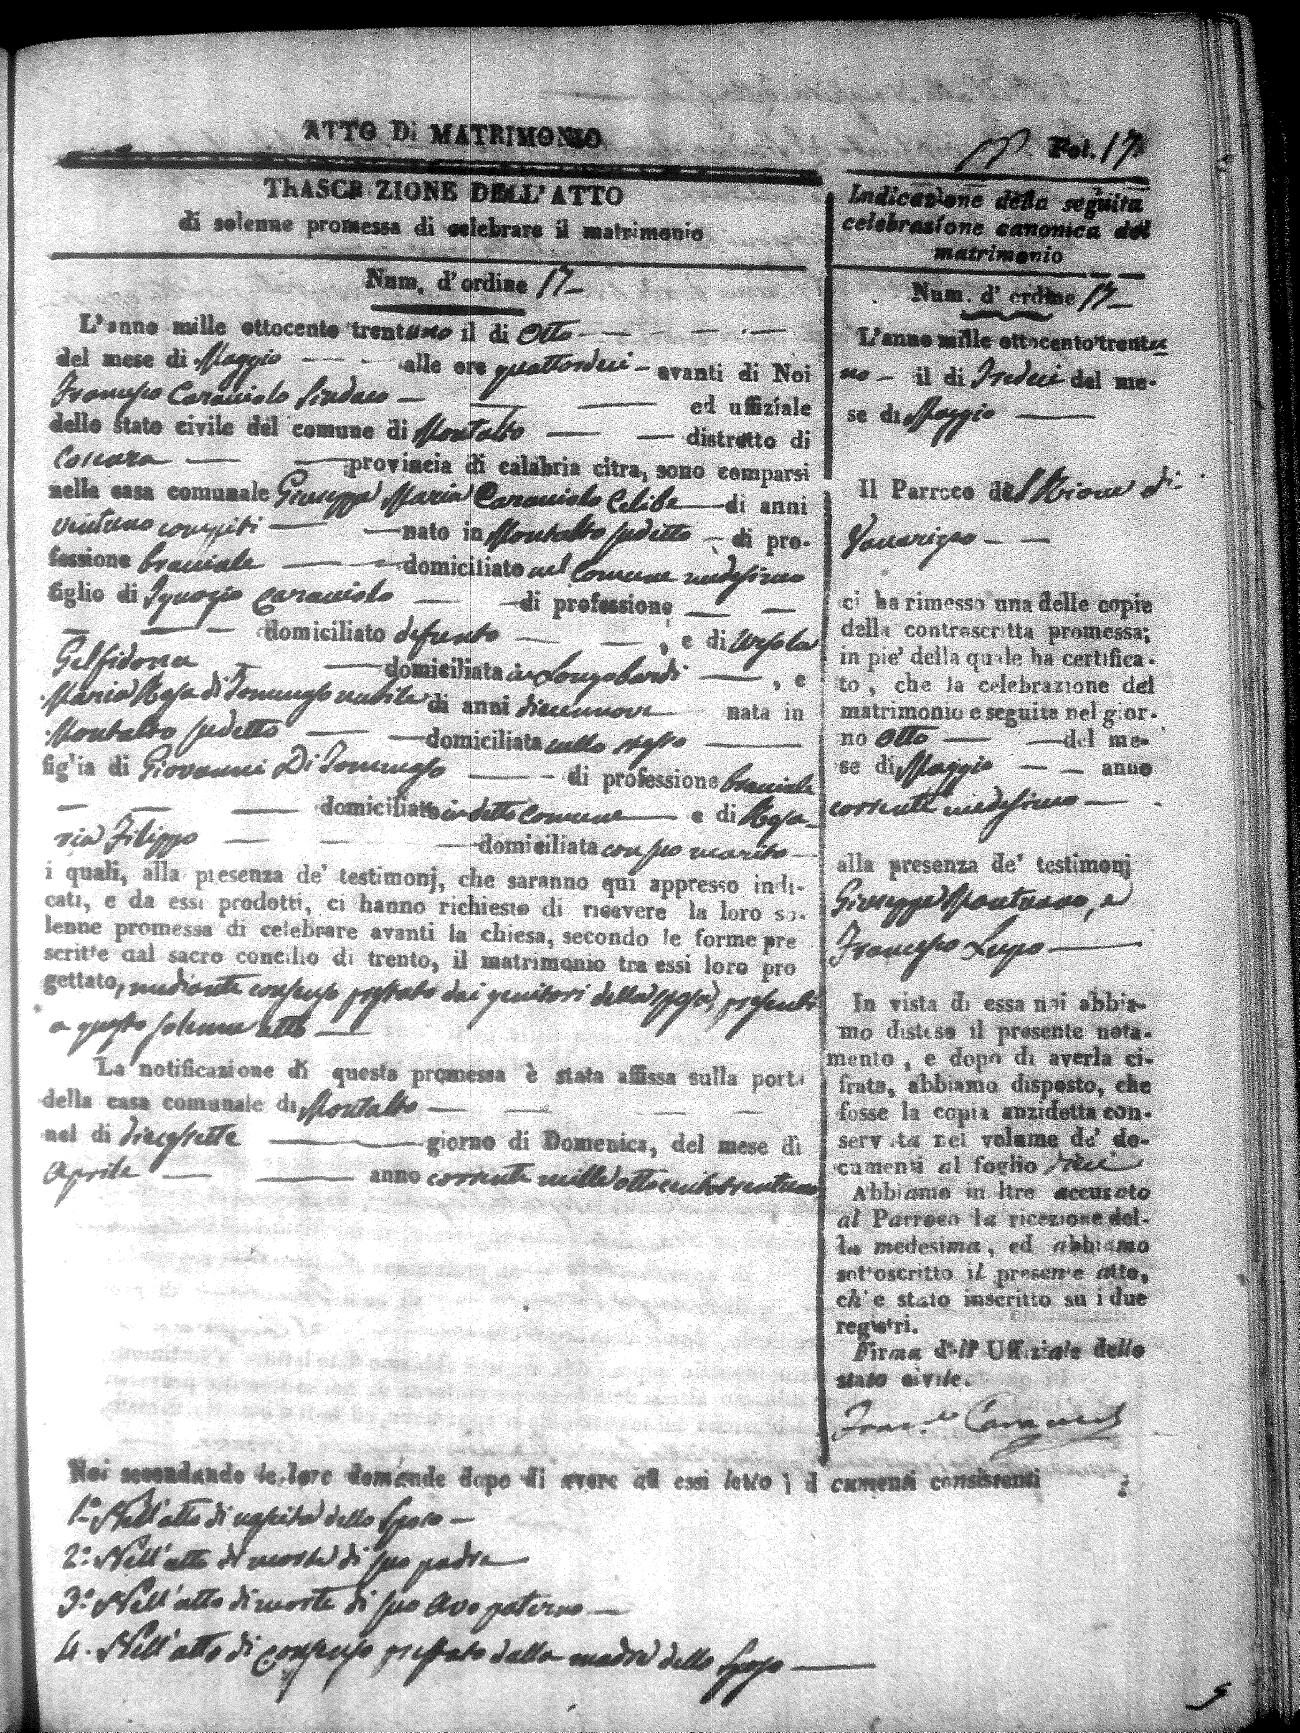 ATTO DI MATRIMONIO
Fol. 17
TRASCRIZIONE DELL'ATTO
di solenne promessa di celebrare il matrimonio
Num. d'ordine 17
L'anno mille ottocento trentuno il di Otto
del mese di Maggio alle ore quattordeci avanti di Noi
Francesco Caraviolo Sindaco ed uffiziale
dello stato civile del comune di Montalto distretto di
Cosenza provincia di calabria citra, sono comparsi
nella casa comunale Giuseppe Maria Caraviolo Celibe di anni
ventuno compiti nato in Montalto sudetto di pro-
fessione bracciale domiciliato nel Comune medesimo
figlio di Ignazio Caraviolo di professione
domiciliato defunto , e di Ursola
Gelfidonna domiciliata in Longobardi , e
Maria Rosa di Tommaso nubile di anni diecinnove nata in
Montalto sudetto domiciliata nello stesso
figlia di Giovanni Di Tommaso di professione bracciale
domiciliato in detto Comune e di Rosa-
ria Filippo domiciliata con suo marito
i quali, alla presenza de' testimonj, che saranno qui appresso indi-
cati, e da essi prodotti, ci hanno richiesto di ricevere la loro so-
lenne promessa di celebrare avanti la chiesa, secondo le forme pre
scritte dal sacro concilio di trento, il matrimonio tra essi loro pro
gettato, mediante consenso prestato dai genitori della sposa, presenti
a questo solenne atto
La notificazione di questa promessa è stata affissa sulla porta
della casa comunale di Montalto
nel di diecessette giorno di Domenica, del mese di
Aprile anno corrente mille ottocentotrentuno
Noi secondando le loro domande dopo di avere ad essi letto i documenti consistenti :
1.° Nell'atto di nascita dello sposo
2.° Nell'atto di morte di suo padre
3.° Nell'atto di morte di suo Avo paterno
4. Nell'atto di consenso prestato dalla madre dello sposo
Indicazione della seguita
celebrazione canonica del
matrimonio
Num. d'ordine 17
L'anno mille ottocento trentu
no il di Tredeci del me-
se di Maggio
Il Parroco di
ci ha rimesso una delle copie
della controscritta promessa;
in pie' della quale ha certifica-
to, che la celebrazione del
matrimonio e seguita nel gior-
no Otto del me-
se di Maggio anno
corrente medesimo
alla presenza de' testimonj
Giuseppe Montuano, e
Francesco Lupo
In vista di essa noi abbia-
mo disteso il presente nota-
mento, e dopo di averla ci-
frata, abbiamo disposto, che
fosse la copia anzidetta con-
servata nel volume de' do-
cumenti al foglio
Abbiamo in ltre accusato
al Parroco la ricezione del-
la medesima, ed abbiamo
sottoscritto il presente atto,
ch'e stato inscritto su i due
registri.
Firma dell' Uffiziale dello
stato civile.